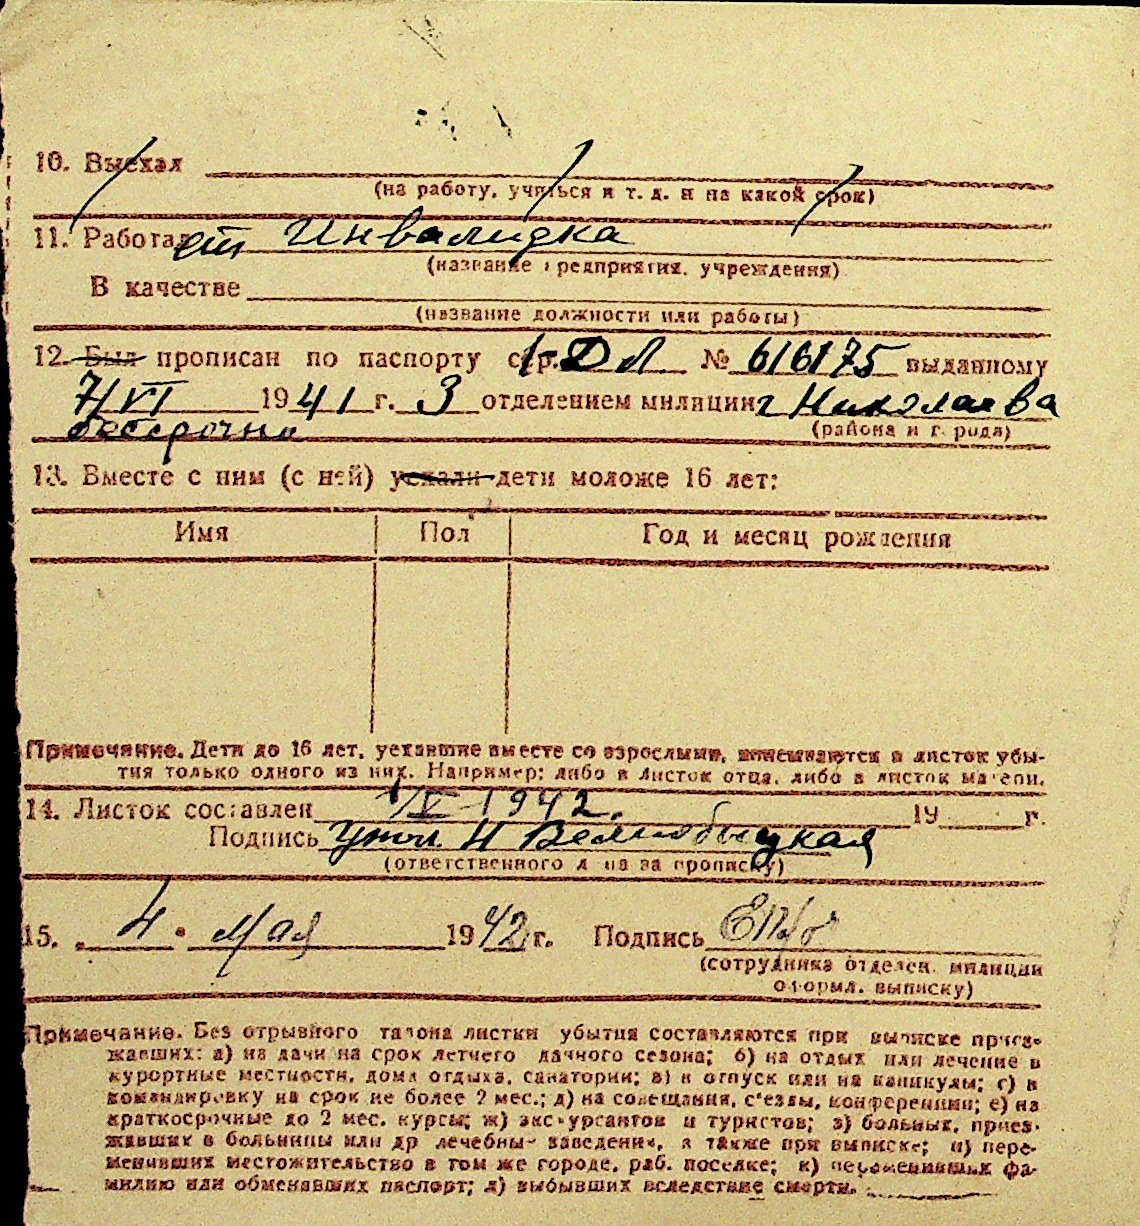 10. Выехал
(на работу, учиться и т. д. и на какой срок)
11. Работал Инвалидка
(название предприятия, учреждения)
В качестве
(название должности или работы)
12. Был прописан по паспорту сер. ДЛ № 616175 выданному
7/VI 1941 г. 3 отделением милиции г Николаева
безсрочно (района и города)
13. Вместе с ним (с ней) уехали дети моложе 16 лет:
Имя Пол Год и месяц рождения
Примечание. Дети до 16 лет, уехавшие вместе со взрослыми, вписываются в листок убы-
тия только одного из них. Например: либо в листок отца, либо в листок матери.
14. Листок составлен 1/V 1942. 19 г.
Подпись
(ответственного лица за прописку)
15. 4 мая 1942 г. Подпись
(сотрудника отделен. милиции
оформл. выписку)
Примечание. Без отрывного талона листки убытия составляются при выписке приез-
жавших: а) на дачи на срок летнего дачного сезона; б) на отдых или лечение в
курортные местности, дома отдыха, санатории; в) в отпуск или на каникулы; г) в
командировку на срок не более 2 мес.; д) на совещания, с'езды, конференции; е) на
краткосрочные до 2 мес. курсы; ж) экскурсантов и туристов; з) больных, приез-
жавших в больницы или др лечебные заведения, а также при выписке; и) пере-
менивших местожительство в том же городе, раб. поселке; к) переменивших фа-
милию или обменявших паспорт; л) выбывших вследствие смерти.